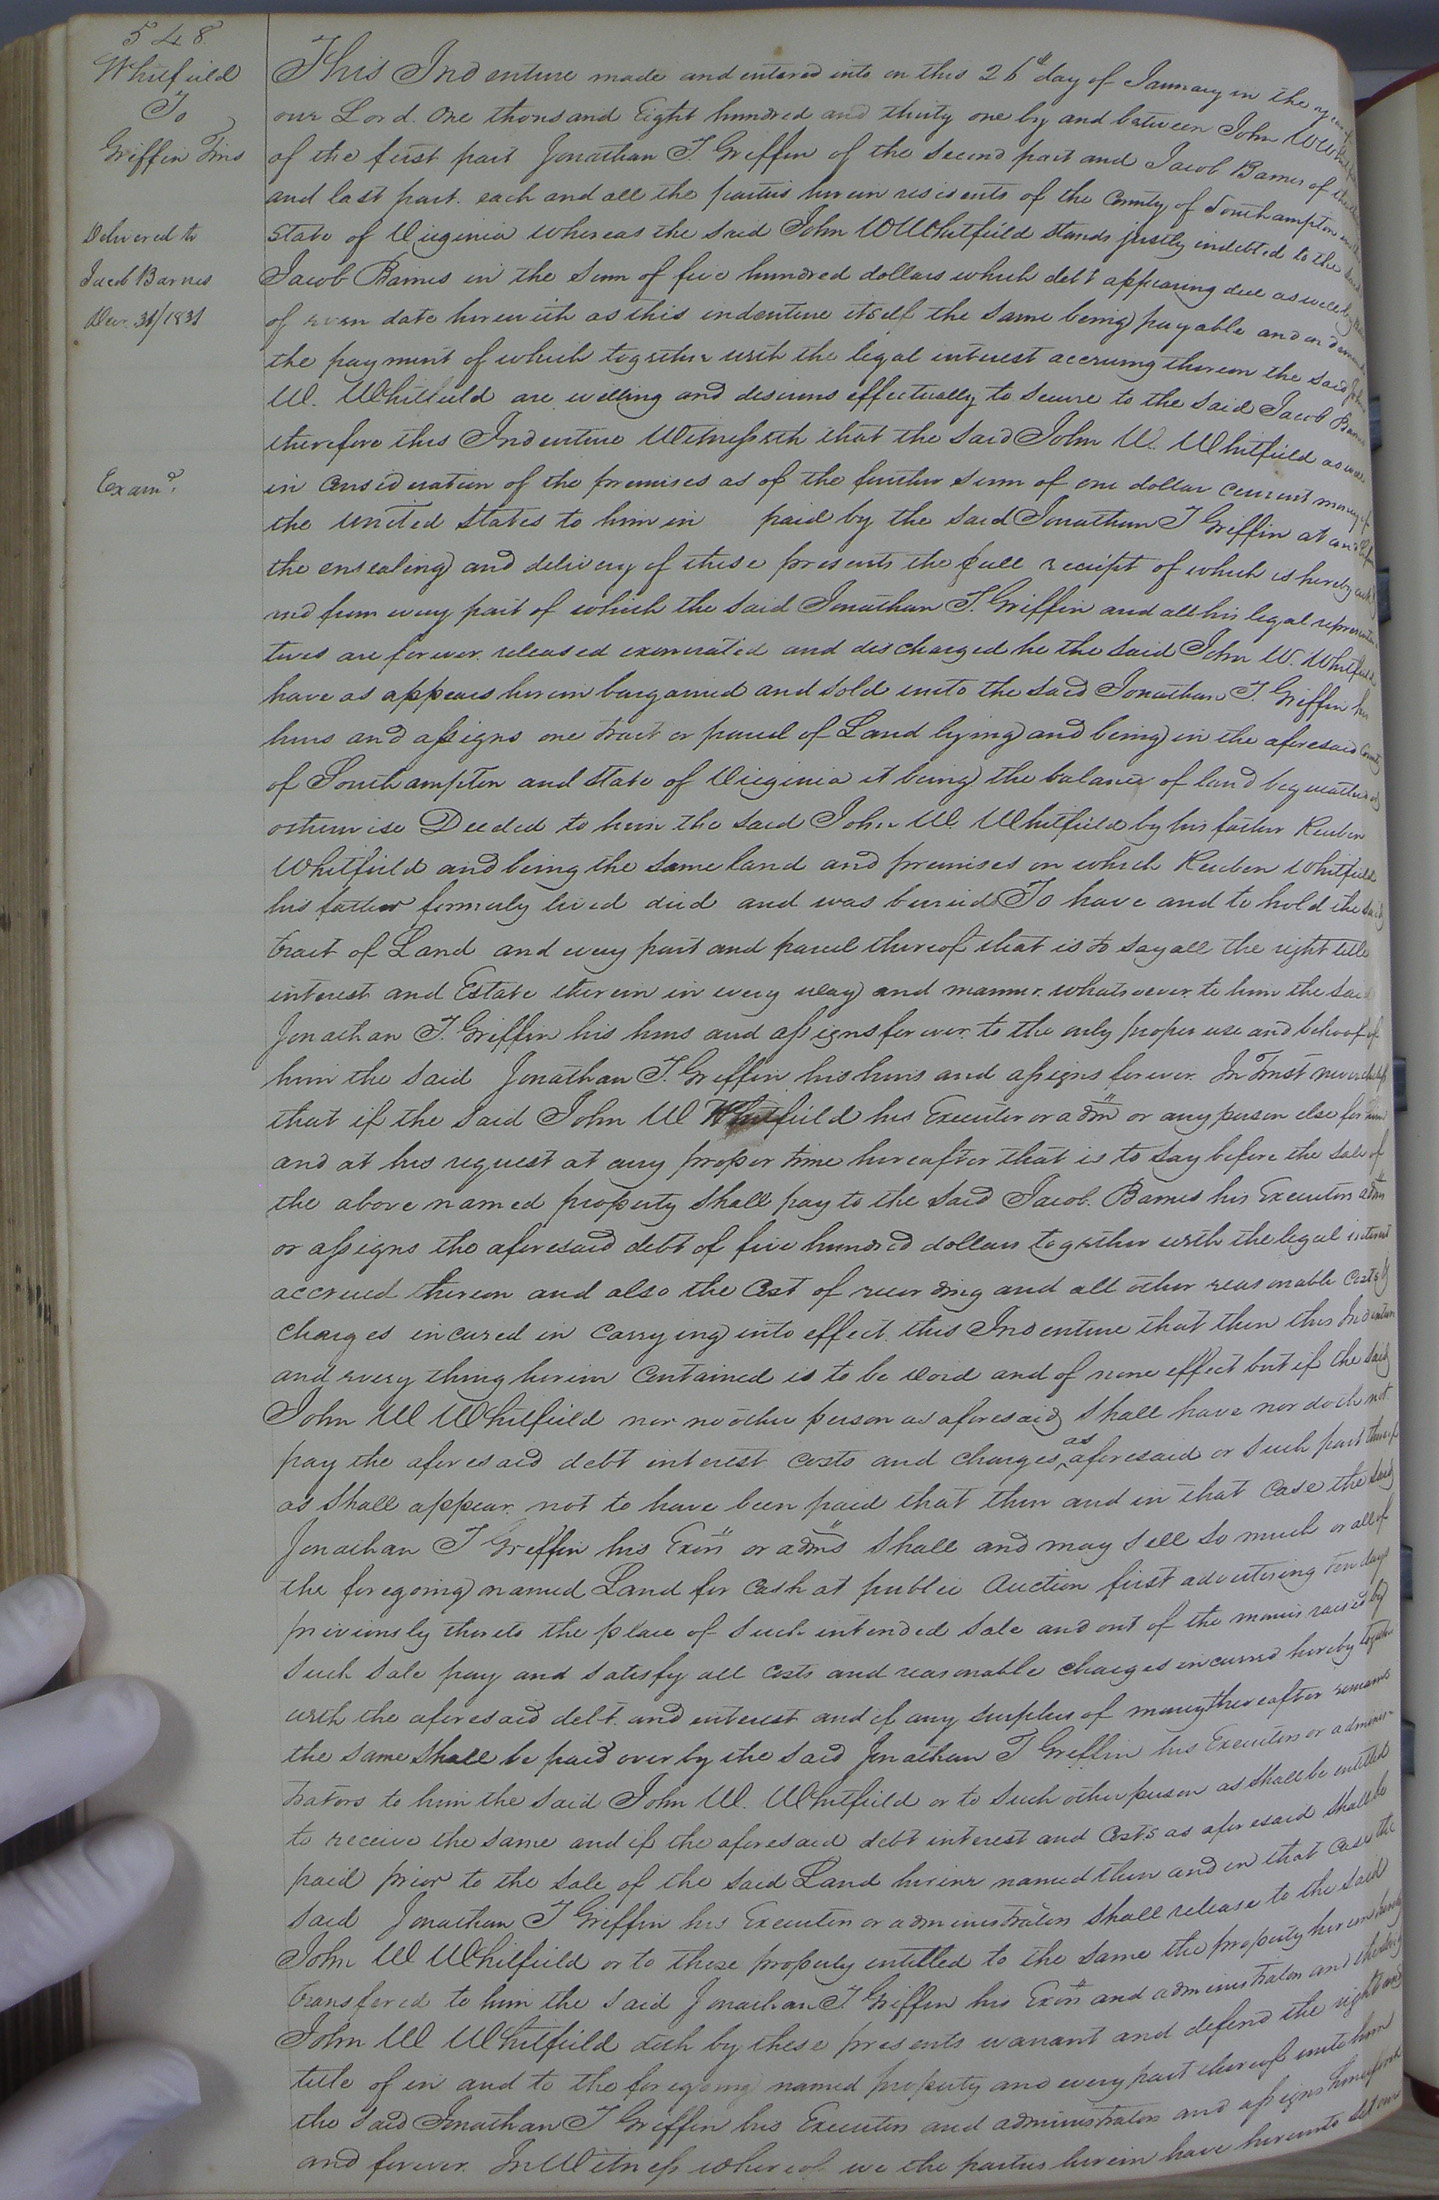 548
Whitfield
To
Griffin Trus
Delivered to
Jacob Barnes
Decr 31/1831
Examd.
This Indenture made and entered into on this 26th day of January in the year of
our Lord. One thousand Eight hundred and thirty one by and between John W Whitfield
of the first part Jonathan T. Griffin of the second part and Jacob Barnes of the third
and last part. each and all the parties herein residents of the County of Southampton and
State of Virginia whereas the said John W Whitfield stands justly indebted to the said
Jacob Barnes in the Sum of five hundred dollars which debt appearing due as well by
of even date herewith as this indenture itself the same being payable and on demand
the payment of which together with the legal interest accruing thereon the said John
W. Whitfield are willing and desirous effectually to secure to the said Jacob Barnes
therefore this Indenture Witnesseth that the said John W. Whitfield as well
in Consideration of the premises as of the further sum of one dollar current money of
the United States to him in paid by the said Jonathan T Griffin at and before
the ensealing and delivery of these presents the full receipt of which is hereby
and from every part of which the said Jonathan T. Griffin and all his legal representa
tives are forever released exonerated and discharged he the said John W. Whitfield
have as appears herein bargained and sold unto the said Jonathan T. Griffin his
heirs and assigns one tract or parcel of Land lying and being in the aforesaid County
of Southampton and State of Virginia it being the balance of land bequeathed or
otherwise Deeded to him the said John W. Whitfield by his father Reuben
Whitfield and being the same land and premises on which Reuben Whitfield
his father formerly lived died and was buried To have and to hold the said
tract of Land and every part and parcel thereof that is to say all the right title
interest and Estate therein in every way and manner whatsoever to him the said
Jonathan T. Griffin his heirs and assigns forever to the only proper use and behoof of
him the said Jonathan T. Griffin his heirs and assigns forever. In Trust nevertheless
that if the said John W Whitfield his Executor or admr or any person else for him
and at his request at any proper time hereafter that is to say before the sale of
the above named property shall pay to the said Jacob Barnes his Executors admrs
or assigns the aforesaid debt of five hundred dollars together with the legal interest
accrued thereon and also the Cost of recording and all other reasonable Costs &
charges incured in Carrying into effect this Indenture that then this Indenture
and every thing herein Contained is to be void and of none effect but if the said
John W Whitfield nor no other person as aforesaid shall have nor doth not
pay the aforesaid debt interest costs and charges as aforesaid or such part thereof
as shall appear not to have been paid that then and in that Case the said
Jonathan T Griffin his Exors or adms shall and may sell so much or all of
the foregoing named Land for Cash at public Auction first advertising ten days
previously thereto the place of such intended sale and out of the monies raised by
such sale pay and satisfy all costs and reasonable charges incurred hereby together
with the aforesaid debt and interest and if any surplus of money thereafter remains
the same shall be paid over by the said Jonathan T Griffin his Executors or adminis-
trators to him the said John W. Whitfield or to such other person as shall be entitled
to receive the same and if the aforesaid debt interest and Costs as aforesaid shall be
paid prior to the sale of the said Land herein named then and in that Case the
said Jonathan T Griffin his Executors or administrators shall release to the said
John W Whitfield or to those properly entitled to the same the property herein hereby
transfered to him the said Jonathan T Griffin his Exors and administrators and the said
John W Whitfield doth by these presents warrant and defend the right and
title of in and to the foregoing named property and every part thereof unto him
the said Jonathan T Griffin his Executors and administrators and assigns henceforth
and forever. In Witness whereof we the parties herein have hereunto set our